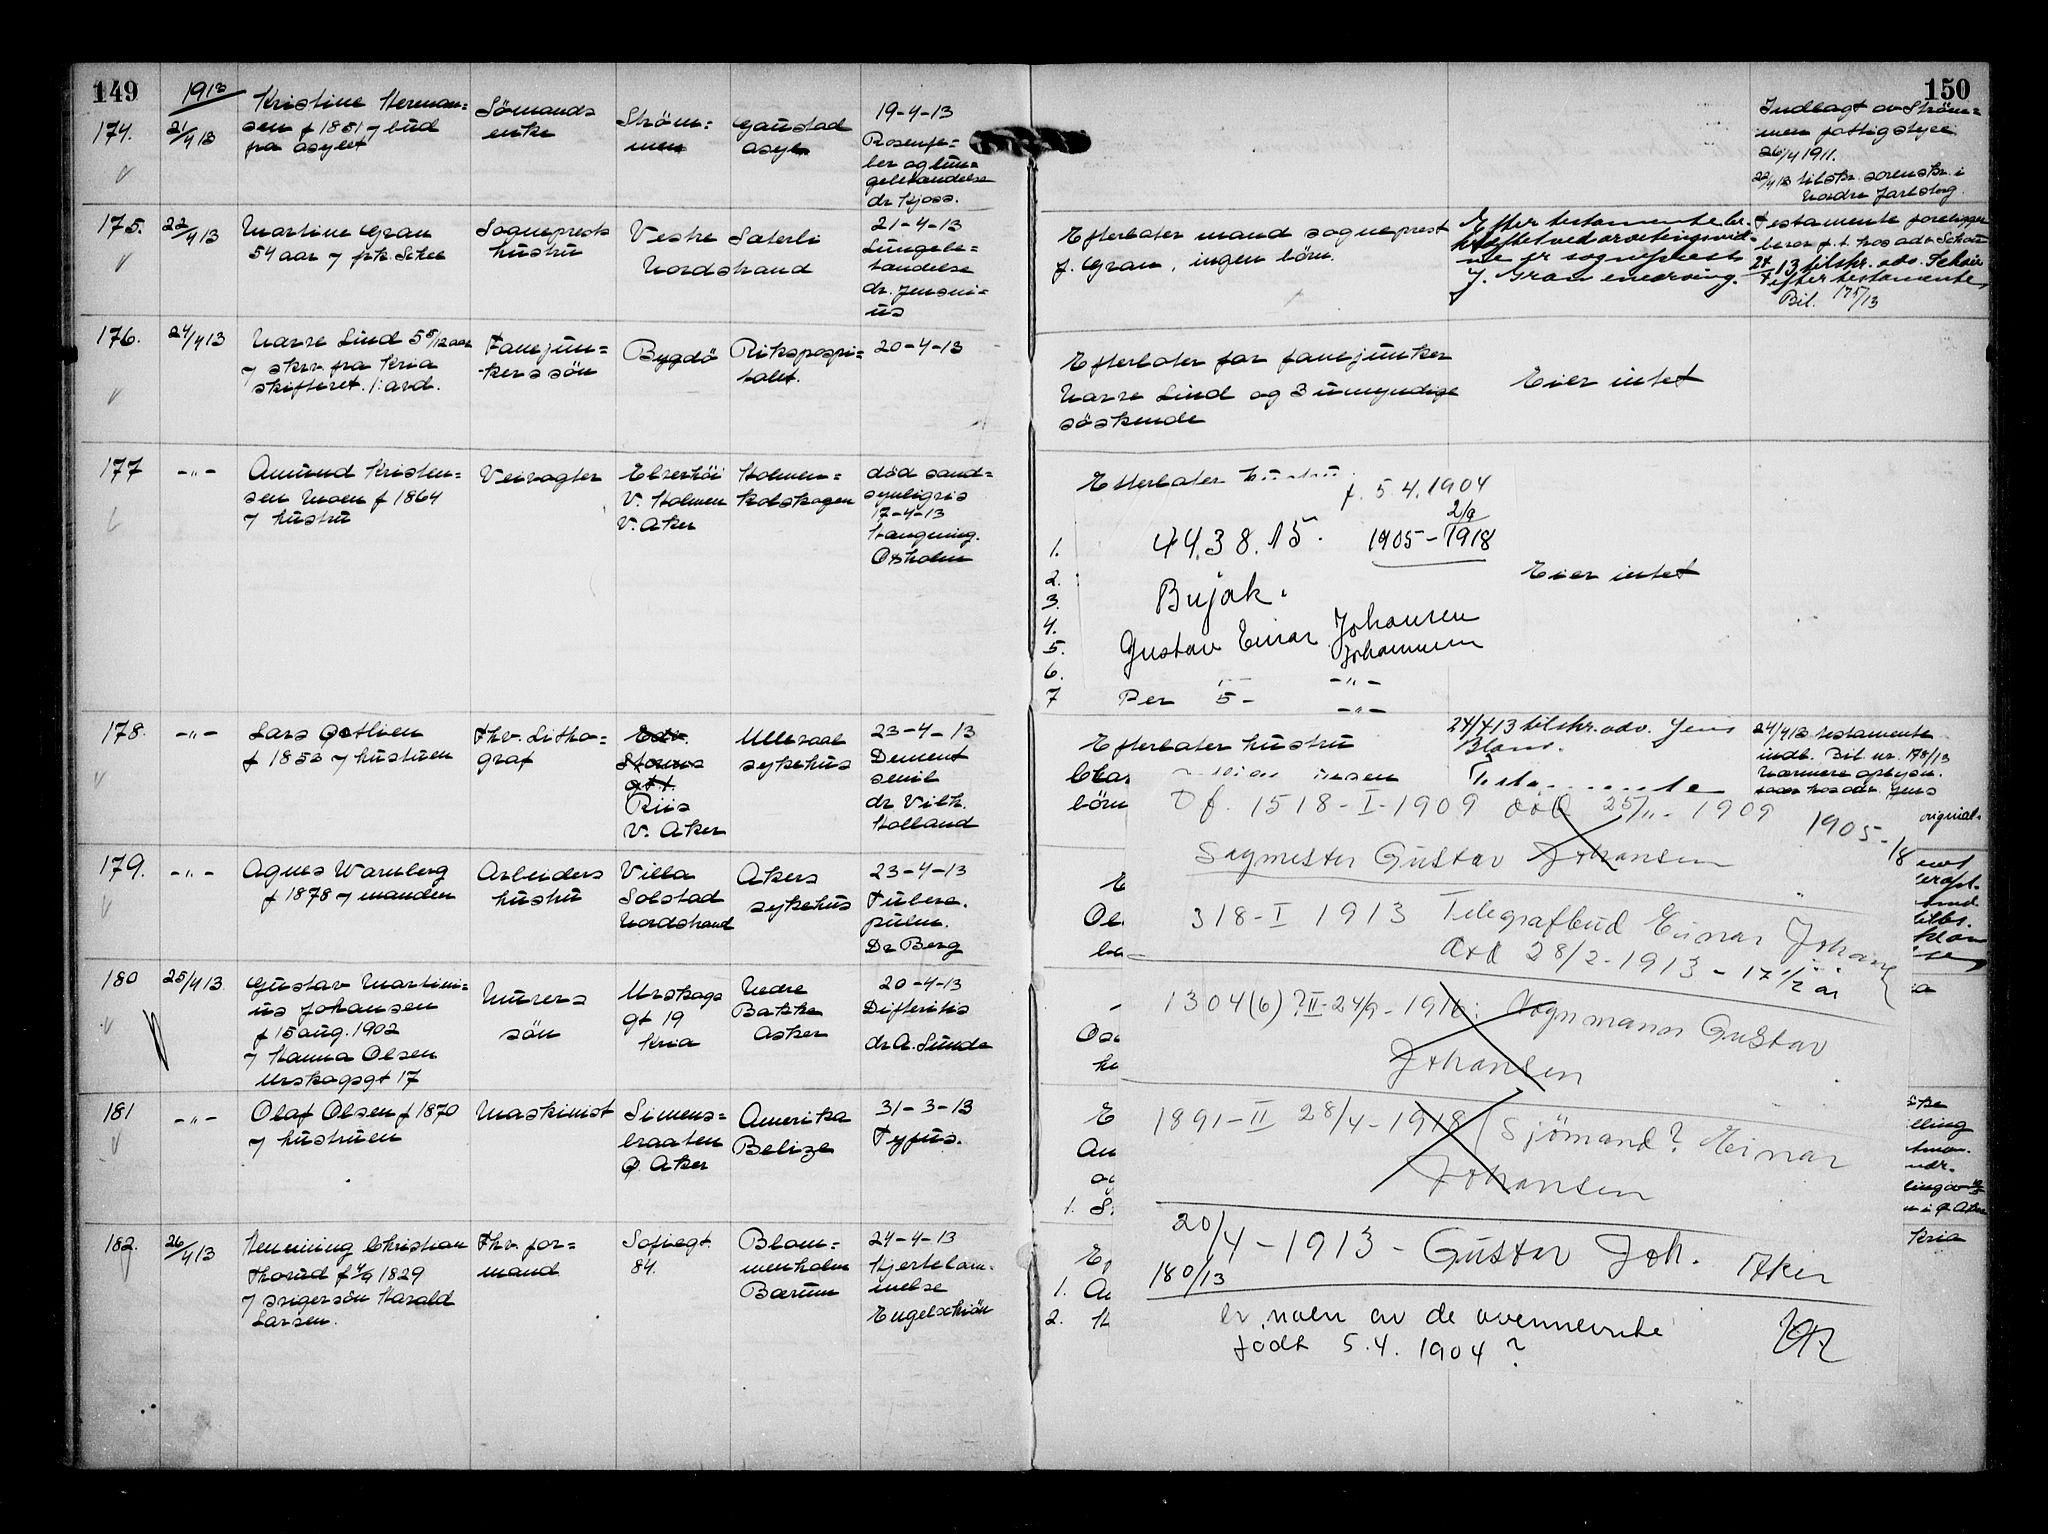 149
1913
174.
21/4 13
Kristine Herman=
sen f 1851 / bud
fra asylet
Sömands
enke
Ström=
men
Gaustad
asyl
19-4-13
Rosenfe=
ber og lun=
gebetændelse
dr. Kjoss.
175.
22/4 13
Martine Gran
54 aar / frk. Schee
Sogneprests
hustru
Vestre Saterli
Nordstrand
21-4-13
Lungebe=
tændelse
dr. Jenssni=
us
176.
24/4 13
Narve Lind 5 5/12 aar
/ skr. fra Kria
skifteret. 1. avd.
Fanejun=
kers sön
Bygdö
Rikshospi=
talet.
20-4-13
177
-"-
Amund Kristen=
sen Moen f 1864
/ hustru
Veivogter
Elverhöi
V. Holmen
V. Aker
Holmen=
kolskogen
död sand=
synligvis
17-4-13
Hængning.
Oxholm
178.
-"-
Lars Østlien
f 1853 / hustruen
Fhv. Litho-
graf
Edv.
Storms
gt 1.
Riis
V. Aker
Ullevaal
sykehus
23-4-13
Dement
senil
dr Vilh.
Holland
179.
-"-
Agnes Warnberg
f 1878 / manden
Arbeiders
hustru
Villa
Solstad
Nordstrand
Akers
sykehus
23-4-13
Tuberc.
pulm.
Dr Berg
180
25/4 13.
Gustav Martini=
us Johansen
f 15 aug. 1902
/ Hanna Olsen
Urskogsgt 17
Murers
sön
Urskogs
gt 19
Kria
Nedre
Bakke
Asker
20-4-13
Difteritis
dr A. Sunde
181
-"-
Olaf Olsen f 1870
/ hustruen
Maskinist
Simens-
braaten
Ø. Aker
Amerika
Belize
31-3-13
Tyfus.
182.
26/4 13
Henning Christian
Thorud f 4/9 1829
/ svigersön Harald
Larsen.
Fhv. for=
mand
Sofiegt.
84.
Blom=
menholm
Bærum
24-4-13
Hjertelam-
melse
Engelschiön
150
Indlagt av Ström=
men fattigstyre
26/4 1911.
22/4 13 tilskr. sorenskr. i
Nordre Jarlsberg.
Efterlater mand sogneprest
J. Gran, ingen börn.
Efter testamente be-
kræftet ved arvetingsvid-
ne er sogneprest
J. Gran enearving.
Testamente foreligger
beror f. t. hos adv. Schøie
24/4 13 tilskr. adv. Schøie
efter testamente,
Bil. 175/13
Efterlater far fanejunker
Narve Lind og 3 umyndige
söskende
Eier intet
Efterlater hustru
f. 5.4.1904
2/9
44.38.15.
1905-1918
1.
2.
3.
4.
5.
6.
7
Eier intet
Bujak.
Gustav Einar Johansen
Johannesen
-"-
Per 5-
-"-
Efterlater hustru
börn
24/4 13 tilskr. adv. Jens
Blom.
24/4 13 testamente
indl. Bil nr. 178/13
original.
Df. 1518-I-1909 död 25/11-1909
1905-18
Sagmester Gustav Johansen
318-I 1913 Telegrafbud Einar Johans
död 28/2-1913-17 1/2 år
1304(6) ?II-24/9-1916: Vognmann Gustav
Johansen
1891-II 28/4-1918 (Sjömand? Einar
Johansen
20/4-1913-Gustav Joh. Aker
180/13
er noen av de ovennevnte
født 5.4.1904?
1. S
1. A
2. H
Kria